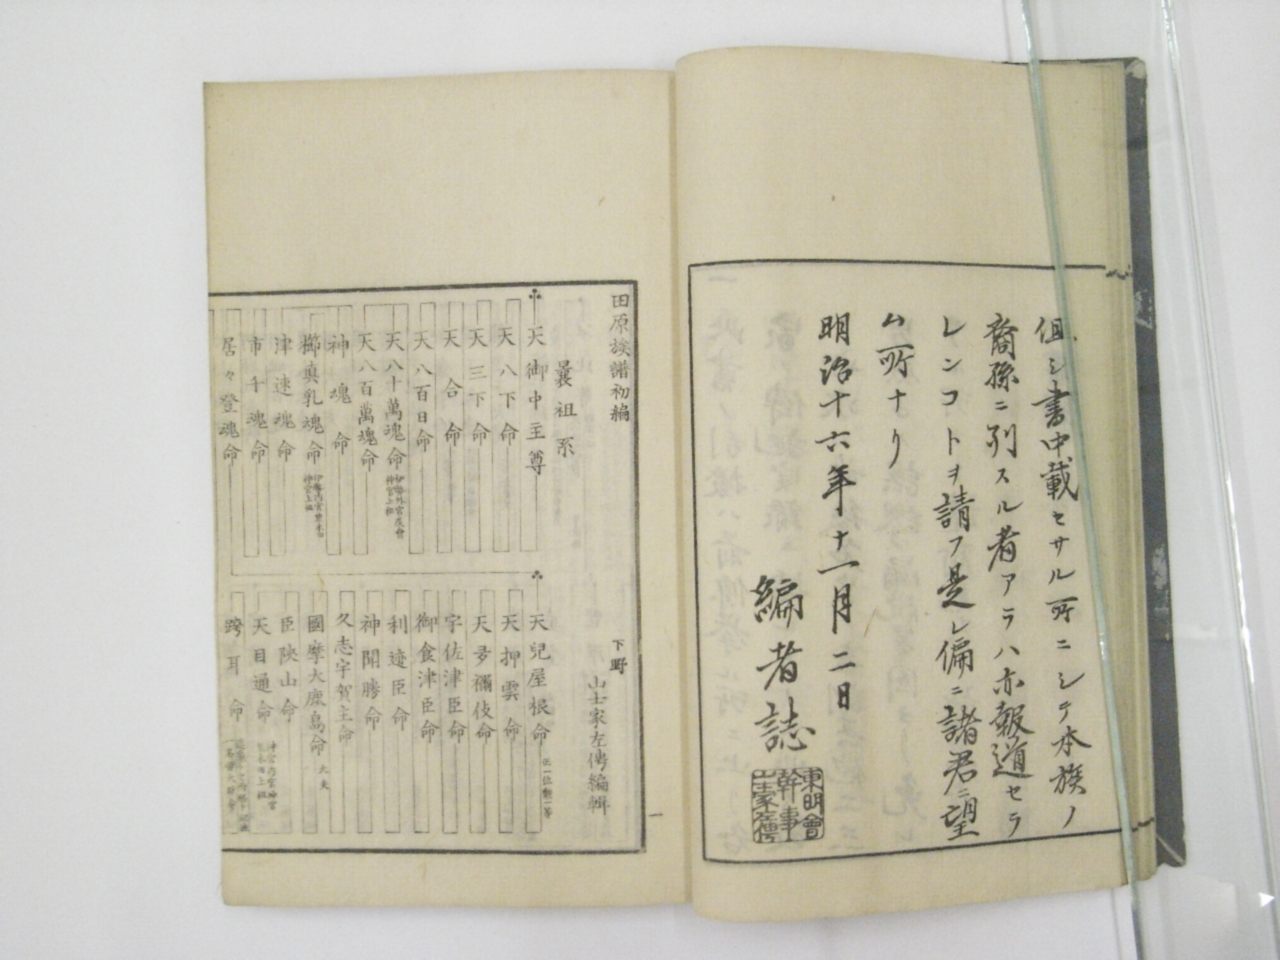 但シ書中載セサル所ニシテ本族ノ
裔孫ニ列スル者アラハ亦報道セラ
レンコトヲ請フ是レ偏ニ諸君ニ望
ム所ナリ
明治十六年十一月二日
編者誌
東明會
幹事
田原族譜初編
下野
山士家左傳編輯
曩祖系
天御中主尊
天八下命
天三下命
天合命
天八百日命
天八十萬魂命
天八百萬魂命
神魂命
櫛真乳魂命
津速魂命
市千魂命
居々登魂命
天兒屋根命
天押雲命
天多禰伎命
宇佐津臣命
御食津臣命
利迹臣命
神聞勝命
久志宇賀主命
國摩大鹿島命
臣陜山命
天目通命
跨耳命
一